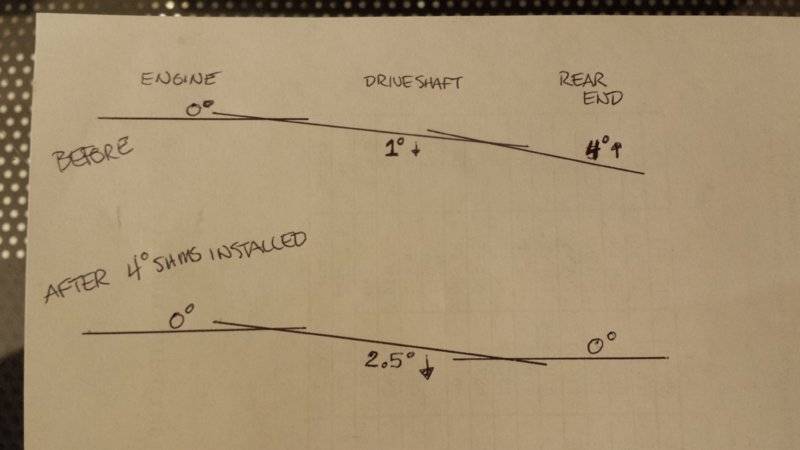 ENGINE DRIVESHAFT REAR END
0°
BEFORE
1° ↓ 4° ↑
AFTER 4° SHMS INSTALLED
0°
2.5° ↓ 0°